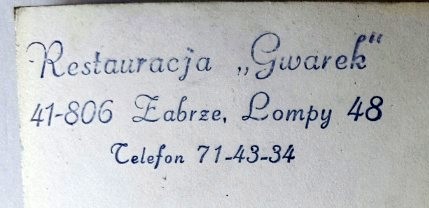 Restauracja „Gwarek"
41-806 Zabrze, Lompy 48
Telefon 71-43-34